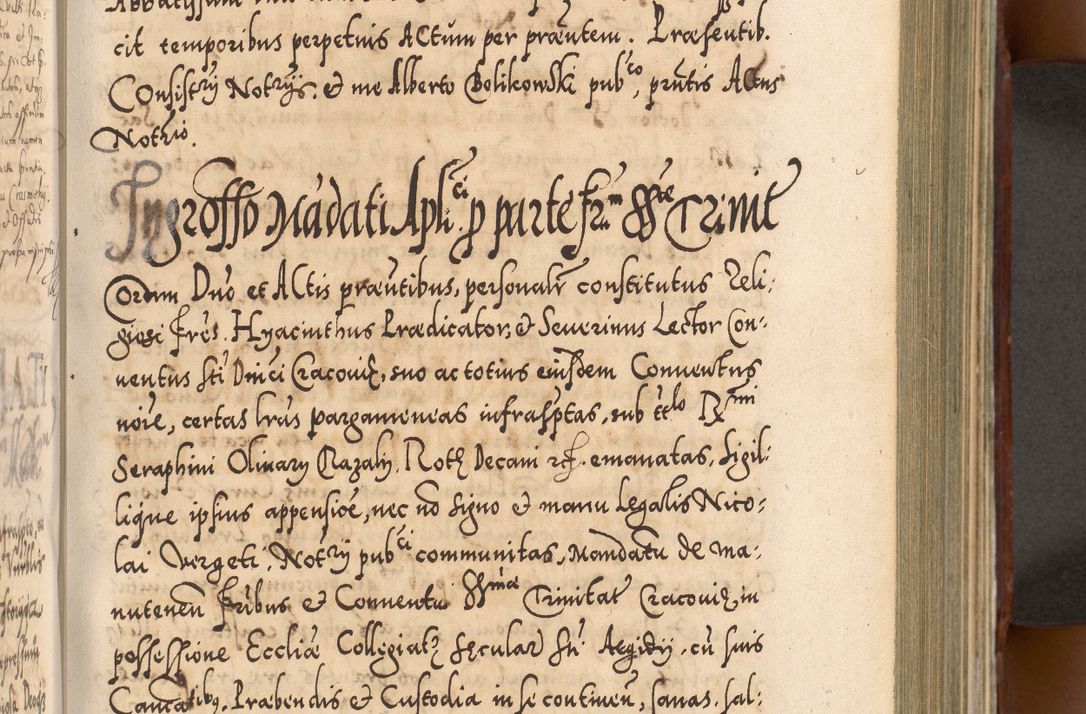 cit temporibus perpetuis ACtum per præutem. Præsentib.
COnsistrÿ Notrÿs. & me Alberto Bolikowski pubco, pṅtis ACtus
Notrio.
Ingrosso Mãdati Aplici p parte frum SSte Trinit
Coram Dno et ACtis præntibus, personalr constitutus Reli-
giosi frēs. Hyacinthus Prædicator, & Seuerinus Lector Con-
uentus Sti Dnici Cracouię, suo ac totius eiusdem Conuentus
noīe, certas lrās pargameneas infrasptas, sub ttlo Rmi
Seraphini Oliuary Razaly, Rotę Decani emanatas, Sigil-
lique ipsius appensioē, nec nō signo & manu Legalis Nico-
lai Vergeti, Notrÿ pubci communitas, Mandatū de ma-
nutenēn fribus & Conuentu SSmæ Trinitat Cracouię, in
possessione Eccliæ Collegiatę Sęcular Sti Aegidÿ, cū suis
Cancatibus, Præbendis & Custodia in se continen, sanas, sal-